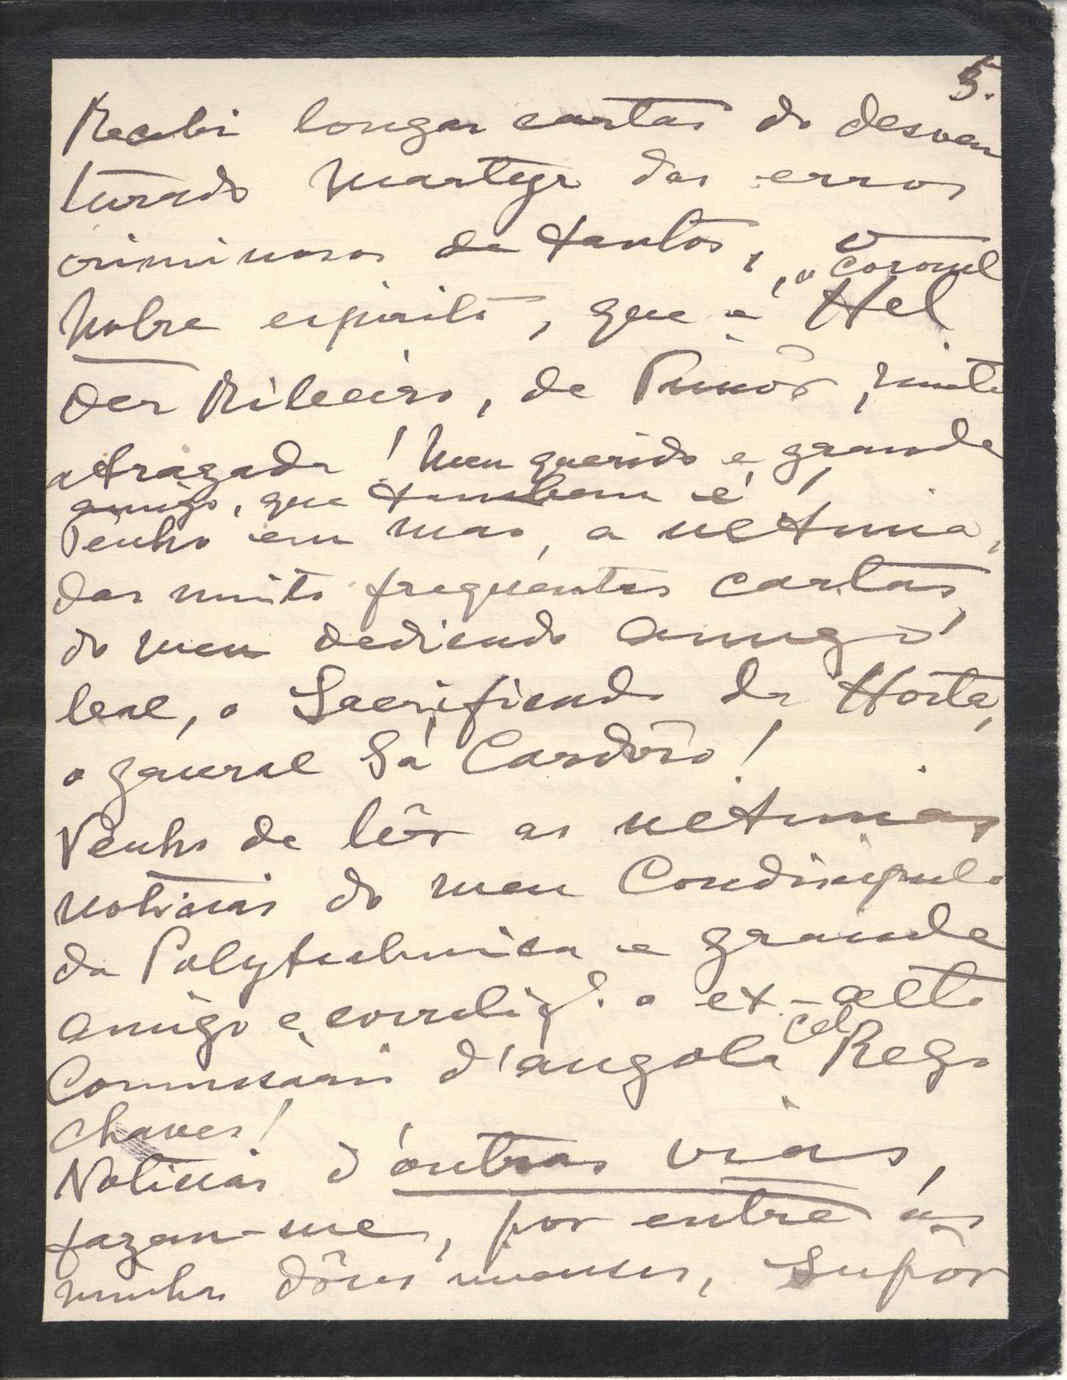 5.
Recebi longas cartas do desven
turado Martyr dos erros
criminosos de tantos, o coronel
Nobre espirito, que é Hel
der Ribeiro, de Pinhô,
atrazada! Meu querido e grande
amigo, que tambem é!
Tenho em mao, a ultima,
das muito frequentes cartas,
do meu dedicado amigo
leal, o Sacrificado da Horta,
o general Sá Cardôso!
Venho de lêr as ultimas
noticias do meu Condiscipulo
da Polytechnica e grande
amigo e correlig.º o ex-alto
Commissario d'Angola Cel Rego
Chaves!
Noticias d'outras vias,
fazem-me, por entre as
minhas dôres immensas, Supôr